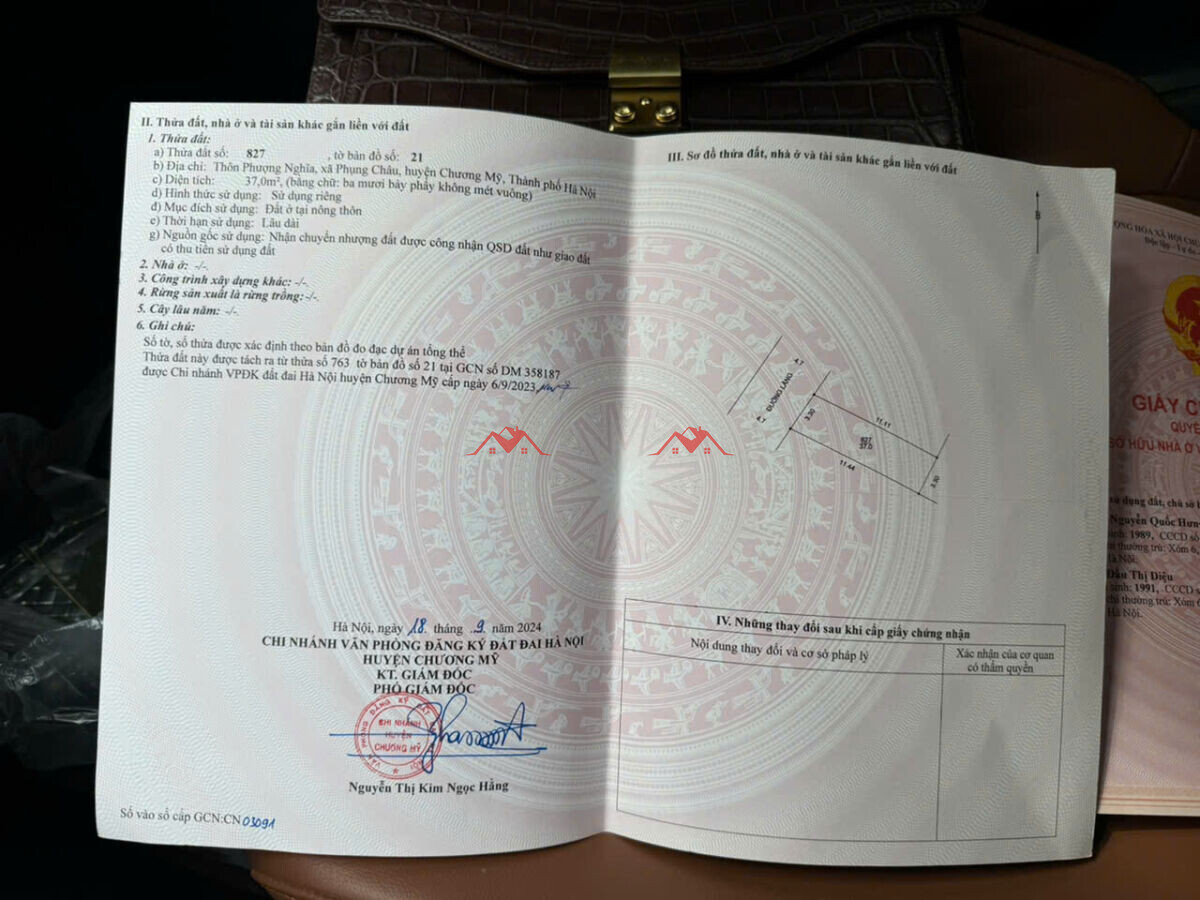 II. Thửa đất, nhà ở và tài sản khác gắn liền với đất
1. Thửa đất:
a) Thửa đất số: 827 , tờ bản đồ số: 21
b) Địa chỉ: Thôn Phượng Nghĩa, xã Phụng Châu, huyện Chương Mỹ, Thành phố Hà Nội
c) Diện tích: 37,0m², (bằng chữ: ba mươi bảy phẩy không mét vuông)
d) Hình thức sử dụng: Sử dụng riêng
đ) Mục đích sử dụng: Đất ở tại nông thôn
e) Thời hạn sử dụng: Lâu dài
g) Nguồn gốc sử dụng: Nhận chuyển nhượng đất được công nhận QSD đất như giao đất
có thu tiền sử dụng đất
2. Nhà ở: -/-.
3. Công trình xây dựng khác: -/-.
4. Rừng sản xuất là rừng trồng:-/-.
5. Cây lâu năm: -/-.
6. Ghi chú:
Số tờ, số thửa được xác định theo bản đồ đo đạc dự án tổng thể
Thửa đất này được tách ra từ thửa số 763 tờ bản đồ số 21 tại GCN số DM 358187
được Chi nhánh VPĐK đất đai Hà Nội huyện Chương Mỹ cấp ngày 6/9/2023
Hà Nội, ngày 18 tháng 9 năm 2024
CHI NHÁNH VĂN PHÒNG ĐĂNG KÝ ĐẤT ĐAI HÀ NỘI
HUYỆN CHƯƠNG MỸ
KT. GIÁM ĐỐC
PHÓ GIÁM ĐỐC
CHI NHÁNH
HUYỆN
CHƯƠNG MỸ
Nguyễn Thị Kim Ngọc Hằng
Số vào sổ cấp GCN:CN 03091
III. Sơ đồ thửa đất, nhà ở và tài sản khác gắn liền với đất
B
4.7
ĐƯỜNG LÀNG
4.7
3.30
11.11
827
37.0
11.44
3.30
IV. Những thay đổi sau khi cấp giấy chứng nhận
Nội dung thay đổi và cơ sở pháp lý
Xác nhận của cơ quan
có thẩm quyền
Độc lập - Tự
GIẤY C
QUYỀ
SỞ HỮU NHÀ Ở V
sử dụng đất, chủ sở
Nguyễn Quốc Hưn
sinh: 1989, CCCD số
thường trú: Xóm 6,
Hà Nội.
Đấu Thị Diệu
sinh: 1991, CCCD
chỉ thường trú: Xóm
Hà Nội.